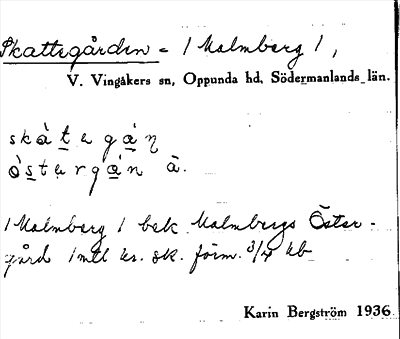 Skattegården - / Malmberg /,
V. Vingåkers sn, Oppunda hd, Södermanlands län.
skàtegáṇ
òstergán à.
/ Malmberg / bek. Malmbergs Öster-
gård 1 mtl kr. sk. förm. 3/4 hb
Karin Bergström 1936